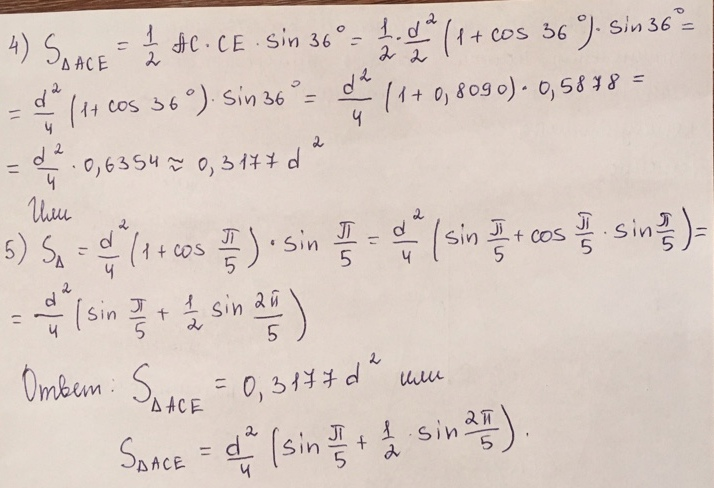 4) S△ACE = 1/2 AC · CE · sin 36° = 1/2 · d²/2 (1 + cos 36°) · sin 36° =
= d²/4 (1 + cos 36°) · sin 36° = d²/4 (1 + 0,8090) · 0,5878 =
= d²/4 · 0,6354 ≈ 0,3177 d²
Или
5) S△ = d²/4 (1 + cos π/5) · sin π/5 = d²/4 (sin π/5 + cos π/5 · sin π/5) =
= d²/4 (sin π/5 + 1/2 sin 2π/5)
Ответ: S△ACE = 0,3177 d² или
S△ACE = d²/4 (sin π/5 + 1/2 · sin 2π/5).